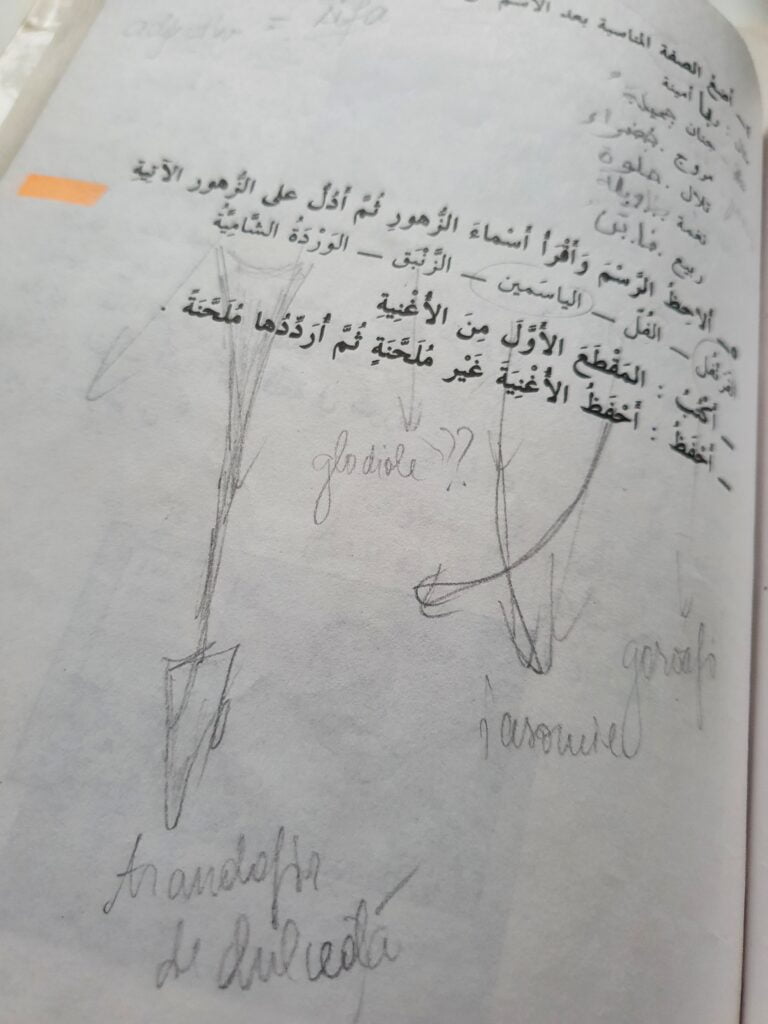 adjectiv = sifa
أضعُ الصفة المناسبة بعد الاسم
رُبا أمينة
جنان جميلة
مروج خضراء
تلال حلوة
نغمة
ربيع
أُلاحِظُ الرَّسْمَ وَأَقْرَأُ أَسْماءَ الزُّهورِ ثُمَّ أَدُلُّ على الزُّهور الآتيةِ
قَرَنْفُل – الفُلّ – الياسَمين – الزَّنْبَق – الوَرْدَةُ الشَّامِيَّةُ
– أَكْتُبُ : المَقْطَعَ الأَوَّلَ مِنَ الأُغْنِيَةِ
– أَحْفَظُ : أَحْفَظُ الأُغْنِيَةَ غَيْر مُلَحَّنَةٍ ثُمَّ أُرَدِّدُها مُلَحَّنَةً .
gladiole ??
garoafi
iasomie
trandafir
de dulceață